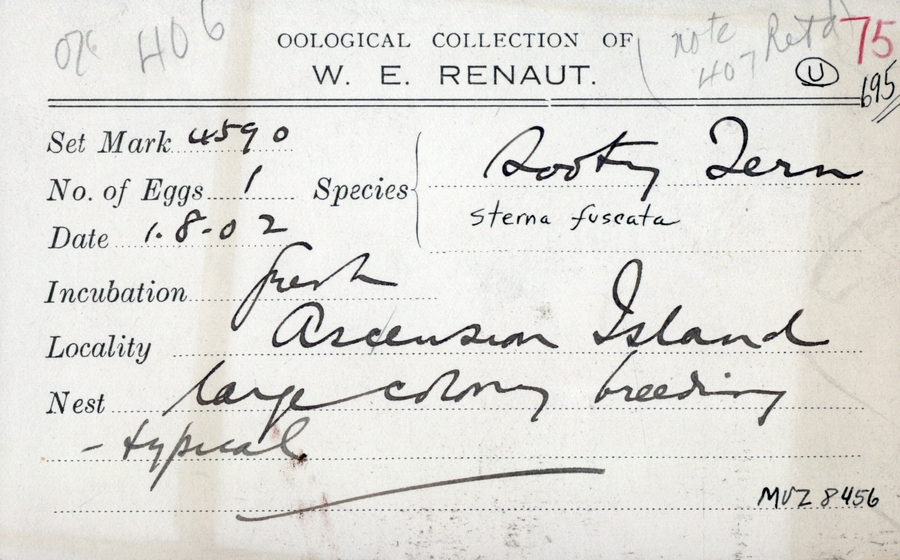 406
OOLOGICAL COLLECTION OF
W. E. RENAUT.
note
407 Retd
75
U
695
Set Mark 4590
No. of Eggs 1 Species
Sooty Tern
Sterna fuscata
Date 1.8.02
Incubation fresh
Locality Ascension Island
Nest large colony breeding
- typical.
MVZ 8456